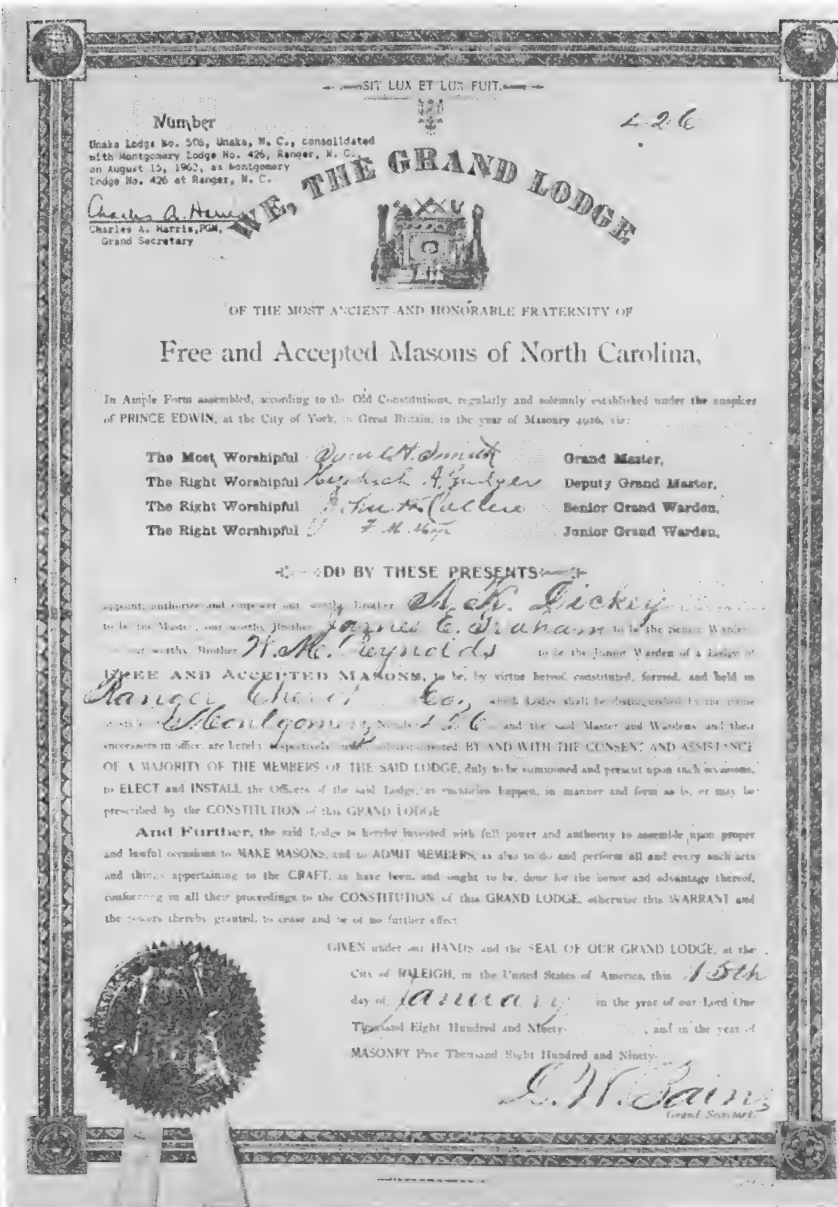 SIT LUX ET LUX FUIT.
Number
426
Unaka Lodge No. 506, Unaka, N. C., consolidated
with Montgomery Lodge No. 426, Ranger, N. C.,
on August 15, 1963, as Montgomery
Lodge No. 426 at Ranger, N. C.
Charles A. Harris
Charles A. Harris, PGM,
Grand Secretary
WE, THE GRAND LODGE
OF THE MOST ANCIENT AND HONORABLE FRATERNITY OF
Free and Accepted Masons of North Carolina,
In Ample Form assembled, according to the Old Constitutions, regularly and solemnly established under the auspices
of PRINCE EDWIN, at the City of York, in Great Britain, in the year of Masonry 4926, viz:
The Most Worshipful Smith Grand Master,
The Right Worshipful Hezekiah A. Gudger Deputy Grand Master,
The Right Worshipful John Senior Grand Warden,
The Right Worshipful F. M. Junior Grand Warden,
DO BY THESE PRESENTS
appoint, authorize and empower our worthy Brother K. Dickey
to be the Master, our worthy Brother James E. Graham to be the Senior Warden
our worthy Brother W. M. Reynolds to be the Junior Warden of a Lodge of
FREE AND ACCEPTED MASONS, to be, by virtue hereof, constituted, formed, and held in
Ranger Co, which Lodge shall be distinguished by the name
Montgomery 426 and the said Master and Wardens and their
successors in office, are hereby respectively BY AND WITH THE CONSENT AND ASSISTANCE
OF A MAJORITY OF THE MEMBERS OF THE SAID LODGE, duly to be summoned and present upon such occasions,
to ELECT and INSTALL the Officers of the said Lodge, as vacancies happen, in manner and form as is, or may be
prescribed by the CONSTITUTION of this GRAND LODGE
And Further, the said Lodge is hereby invested with full power and authority to assemble upon proper
and lawful occasions to MAKE MASONS, and to ADMIT MEMBERS, as also to do and perform all and every such acts
and things appertaining to the CRAFT, as have been, and ought to be, done for the honor and advantage thereof,
conforming in all their proceedings to the CONSTITUTION of this GRAND LODGE, otherwise this WARRANT and
the powers thereby granted, to cease and be of no further effect
GIVEN under our HANDS and the SEAL OF OUR GRAND LODGE, at the
City of RALEIGH, in the United States of America, this 15th
day of January in the year of our Lord One
Thousand Eight Hundred and Ninety- , and in the year of
MASONRY Five Thousand Eight Hundred and Ninety-
D. W. Bain
Grand Secretary.